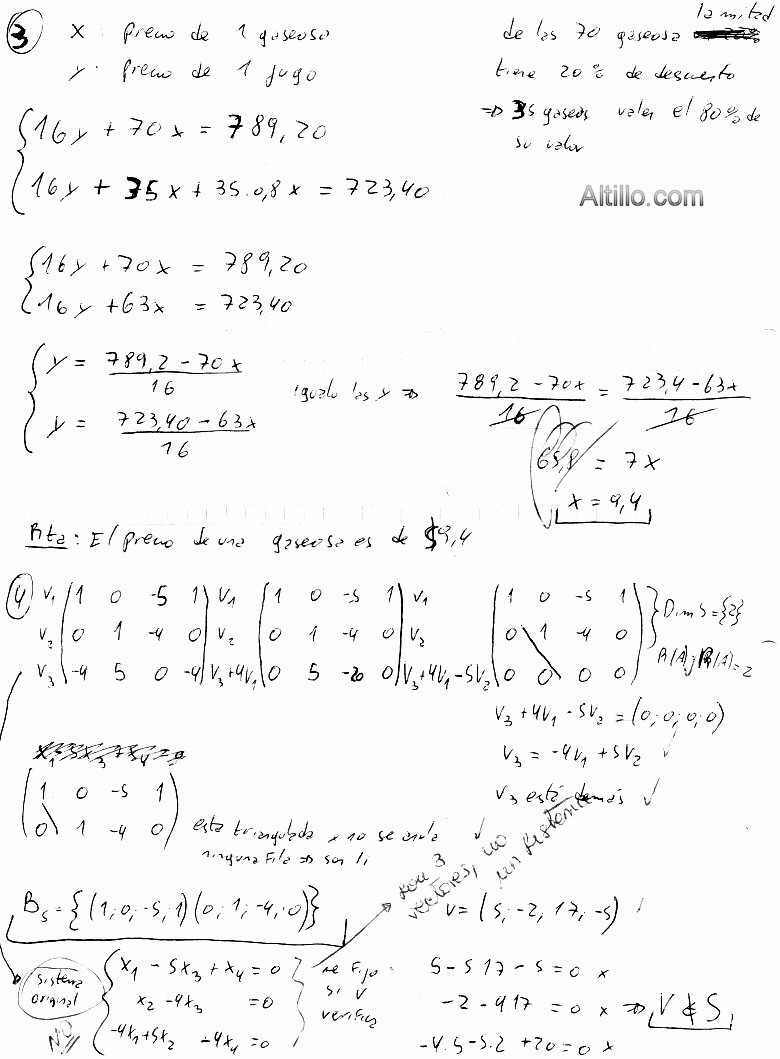 3 x: precio de 1 gaseosa
y: precio de 1 jugo
la mitad
de las 70 gaseosa
tiene 20% de descuento
=> 35 gaseos valen el 80% de
su valor
16y + 70x = 789,20
16y + 35x + 35.0,8x = 723,40
Altillo.com
16y + 70x = 789,20
16y + 63x = 723,40
y = 789,2 - 70x / 16
y = 723,40 - 63x / 16
igualo las y => 789,2 - 70x / 16 = 723,4 - 63x / 16
65,8 = 7x
x = 9,4
Rta: El precio de una gaseosa es de $9,4
4 V1 (1 0 -5 1) V1 (1 0 -5 1) V1 (1 0 -5 1) Dim S = {2}
V2 (0 1 -4 0) V2 (0 1 -4 0) V2 (0 1 -4 0)
V3 (-4 5 0 -4) V3+4V1 (0 5 -20 0) V3+4V1-5V2 (0 0 0 0) = 2
V3 + 4V1 - 5V2 = (0; 0; 0; 0)
V3 = -4V1 + 5V2 ✓
V3 está demás ✓
(1 0 -5 1)
(0 1 -4 0) esta triangulada y no se anula ✓
ninguna Fila => son li
son 3
vectores, no
un sistema
Bs = {(1; 0; -5; 1) (0; 1; -4; 0)}
V = (5; -2, 17, -5)
sistema
original
NO
x1 - 5x3 + x4 = 0
x2 - 4x3 = 0
-4x1 + 5x2 -4x4 = 0
me fijo
si V
verifica
5 - 5 17 - 5 = 0 x
-2 - 4 17 = 0 x => V ∉ S
-4.5 - 5.2 + 20 = 0 x